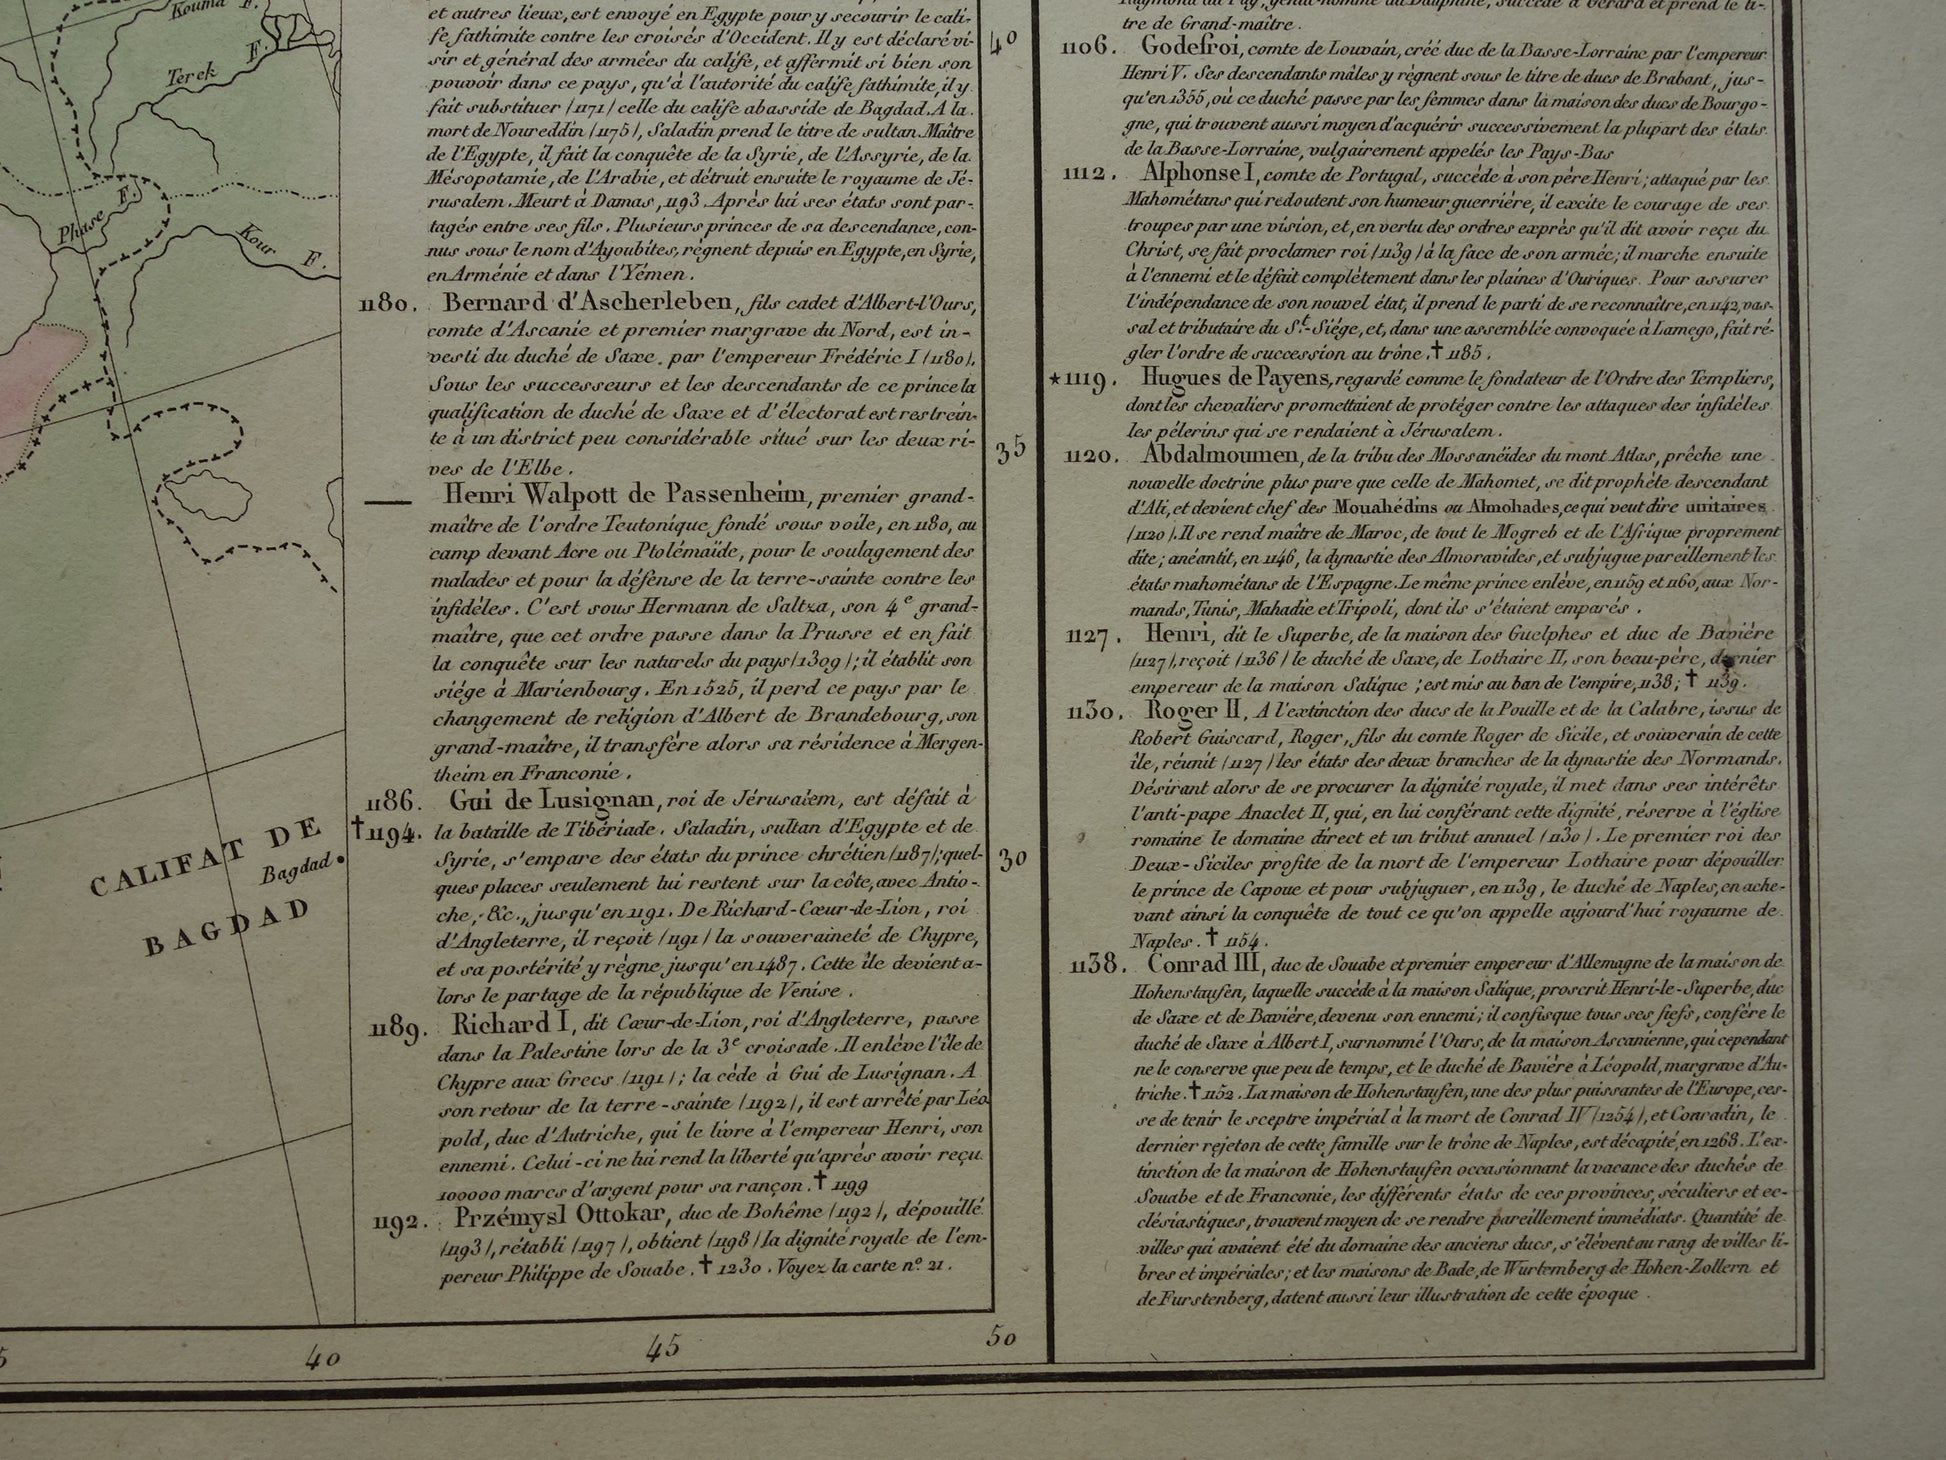 Kouma F.
Terek F.
Phase F.
Kour F.
CALIFAT DE
Bagdad
BAGDAD
et autres lieux, est envoyé en Egypte pour y secourir le cali-
fe fathimite contre les croisés d'Occident. Il y est déclaré vi-
sir et général des armées du calife, et affermit si bien son
pouvoir dans ce pays, qu'à l'autorité du calife fathimite, il y
fait substituer (1171) celle du calife abasside de Bagdad. A la
mort de Noureddin (1175), Saladin prend le titre de sultan. Maître
de l'Egypte, il fait la conquête de la Syrie, de l'Assyrie, de la
Mésopotamie, de l'Arabie, et détruit ensuite le royaume de Jé-
rusalem. Meurt à Damas, 1193. Après lui ses états sont par-
tagés entre ses fils. Plusieurs princes de sa descendance, con-
nus sous le nom d'Ayoubites, règnent depuis en Egypte, en Syrie,
en Arménie et dans l'Yémen.
1180. Bernard d'Ascherleben, fils cadet d'Albert-l'Ours,
comte d'Ascanie et premier margrave du Nord, est in-
vesti du duché de Saxe, par l'empereur Frédéric I (1180).
Sous les successeurs et les descendants de ce prince la
qualification de duché de Saxe et d'électorat est restrein-
te à un district peu considérable situé sur les deux ri-
ves de l'Elbe.
— Henri Walpott de Passenheim, premier grand-
maître de l'ordre Teutonique fondé sous voile, en 1180, au
camp devant Acre ou Ptolémaïde, pour le soulagement des
malades et pour la défense de la terre-sainte contre les
infidèles. C'est sous Hermann de Saltza, son 4e grand-
maître, que cet ordre passe dans la Prusse et en fait
la conquête sur les naturels du pays (1309); il établit son
siége à Marienbourg. En 1525, il perd ce pays par le
changement de religion d'Albert de Brandebourg, son
grand-maître, il transfère alors sa résidence à Mergen-
theim en Franconie.
1186. Gui de Lusignan, roi de Jérusalem, est défait à
†1194. la bataille de Tibériade. Saladin, sultan d'Egypte et de
Syrie, s'empare des états du prince chrétien (1187); quel-
ques places seulement lui restent sur la côte, avec Antio-
che, &c., jusqu'en 1191. De Richard-Cœur-de-Lion, roi
d'Angleterre, il reçoit (1191) la souveraineté de Chypre,
et sa postérité y règne jusqu'en 1487. Cette île devient a-
lors le partage de la république de Venise.
1189. Richard I, dit Cœur-de-Lion, roi d'Angleterre, passe
dans la Palestine lors de la 3e croisade. Il enlève l'île de
Chypre aux Grecs (1191); la cède à Gui de Lusignan. A
son retour de la terre-sainte (1192), il est arrêté par Léo
pold, duc d'Autriche, qui le livre à l'empereur Henri, son
ennemi. Celui-ci ne lui rend la liberté qu'après avoir reçu
100000 marcs d'argent pour sa rançon. † 1199
1192. Przémysl Ottokar, duc de Bohême (1192), dépouillé
(1193), rétabli (1197), obtient (1198) la dignité royale de l'em-
pereur Philippe de Souabe. † 1230. Voyez la carte n° 21.
40
35
30
5
40
45
50
tre de Grand-maître.
1106. Godefroi, comte de Louvain, créé duc de la Basse-Lorraine par l'empereur
Henri V. Ses descendants mâles y règnent sous le titre de ducs de Brabant, jus-
qu'en 1355, où ce duché passe par les femmes dans la maison des ducs de Bourgo-
gne, qui trouvent aussi moyen d'acquérir successivement la plupart des états
de la Basse-Lorraine, vulgairement appelés les Pays-Bas
1112. Alphonse I, comte de Portugal, succède à son père Henri; attaqué par les
Mahométans qui redoutent son humeur guerrière, il excite le courage de ses
troupes par une vision, et, en vertu des ordres exprès qu'il dit avoir reçu du
Christ, se fait proclamer roi (1139) à la face de son armée; il marche ensuite
à l'ennemi et le défait complètement dans les plaines d'Ouriques. Pour assurer
l'indépendance de son nouvel état, il prend le parti de se reconnaître, en 1142, vas-
sal et tributaire du St-Siége, et, dans une assemblée convoquée à Lamego, fait ré-
gler l'ordre de succession au trône. † 1185.
★1119. Hugues de Payens, regardé comme le fondateur de l'Ordre des Templiers,
dont les chevaliers promettaient de protéger contre les attaques des infidèles
les pélerins qui se rendaient à Jérusalem.
1120. Abdalmoumen, de la tribu des Mossanéides du mont Atlas, prêche une
nouvelle doctrine plus pure que celle de Mahomet, se dit prophète descendant
d'Ali, et devient chef des Mouahédins ou Almohades, ce qui veut dire unitaires
(1120). Il se rend maître de Maroc, de tout le Mogreb et de l'Afrique proprement
dite; anéantit, en 1146, la dynastie des Almoravides, et subjugue pareillement les
états mahométans de l'Espagne. Le même prince enlève, en 1159 et 1160, aux Nor-
mands, Tunis, Mahadie et Tripoli, dont ils s'étaient emparés.
1127. Henri, dit le Superbe, de la maison des Guelphes et duc de Bavière
(1127), reçoit (1136) le duché de Saxe, de Lothaire II, son beau-père, dernier
empereur de la maison Salique; est mis au ban de l'empire, 1138; † 1139.
1130. Roger II, A l'extinction des ducs de la Pouille et de la Calabre, issus de
Robert Guiscard, Roger, fils du comte Roger de Sicile, et souverain de cette
île, réunit (1127) les états des deux branches de la dynastie des Normands.
Désirant alors de se procurer la dignité royale, il met dans ses intérêts
l'anti-pape Anaclet II, qui, en lui conférant cette dignité, réserve à l'église
romaine le domaine direct et un tribut annuel (1130). Le premier roi des
Deux-Siciles profite de la mort de l'empereur Lothaire pour dépouiller
le prince de Capoue et pour subjuguer, en 1139, le duché de Naples, en ache-
vant ainsi la conquête de tout ce qu'on appelle aujourd'hui royaume de
Naples. † 1154.
1138. Conrad III, duc de Souabe et premier empereur d'Allemagne de la maison de
Hohenstaufen, laquelle succède à la maison Salique, proscrit Henri-le-Superbe, duc
de Saxe et de Bavière, devenu son ennemi; il confisque tous ses fiefs, confère le
duché de Saxe à Albert I, surnommé l'Ours, de la maison Ascanienne, qui cependant
ne le conserve que peu de temps, et le duché de Bavière à Léopold, margrave d'Au-
triche. † 1152. La maison de Hohenstaufen, une des plus puissantes de l'Europe, ces-
se de tenir le sceptre impérial à la mort de Conrad IV (1254), et Conradin, le
dernier rejeton de cette famille sur le trône de Naples, est décapité, en 1268. L'ex-
tinction de la maison de Hohenstaufen occasionnant la vacance des duchés de
Souabe et de Franconie, les différents états de ces provinces, séculiers et ec-
clésiastiques, trouvent moyen de se rendre pareillement immédiats. Quantité de
villes qui avaient été du domaine des anciens ducs, s'élèvent au rang de villes li-
bres et impériales; et les maisons de Bade, de Wurtemberg de Hohen-Zollern et
de Furstenberg, datent aussi leur illustration de cette époque.